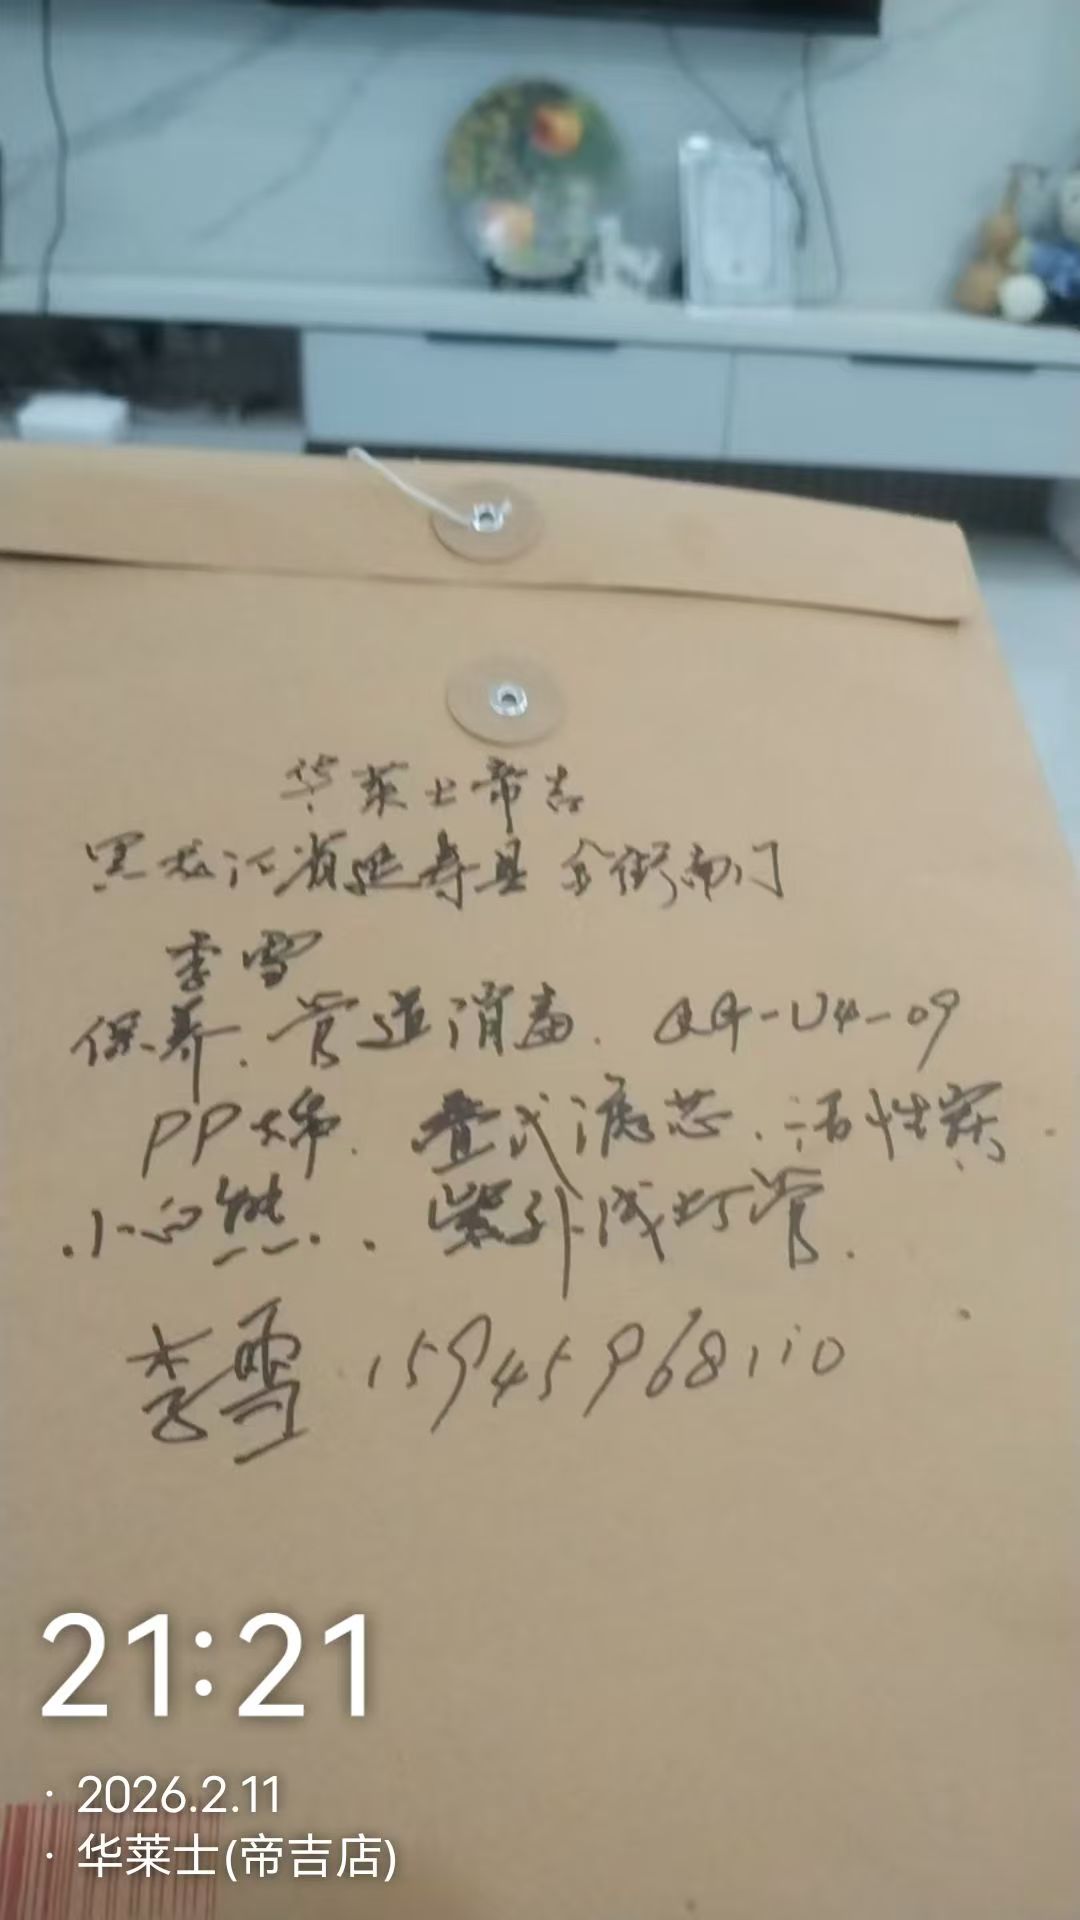 华莱士帝吉
黑龙江省延寿县 金街南门
李雪
保养. 管道消毒. QG-U4-09
PP棉. 叠式滤芯. 活性炭.
小白熊. 紫外线灯管.
李雪 15945968110
21:21
· 2026.2.11
· 华莱士(帝吉店)